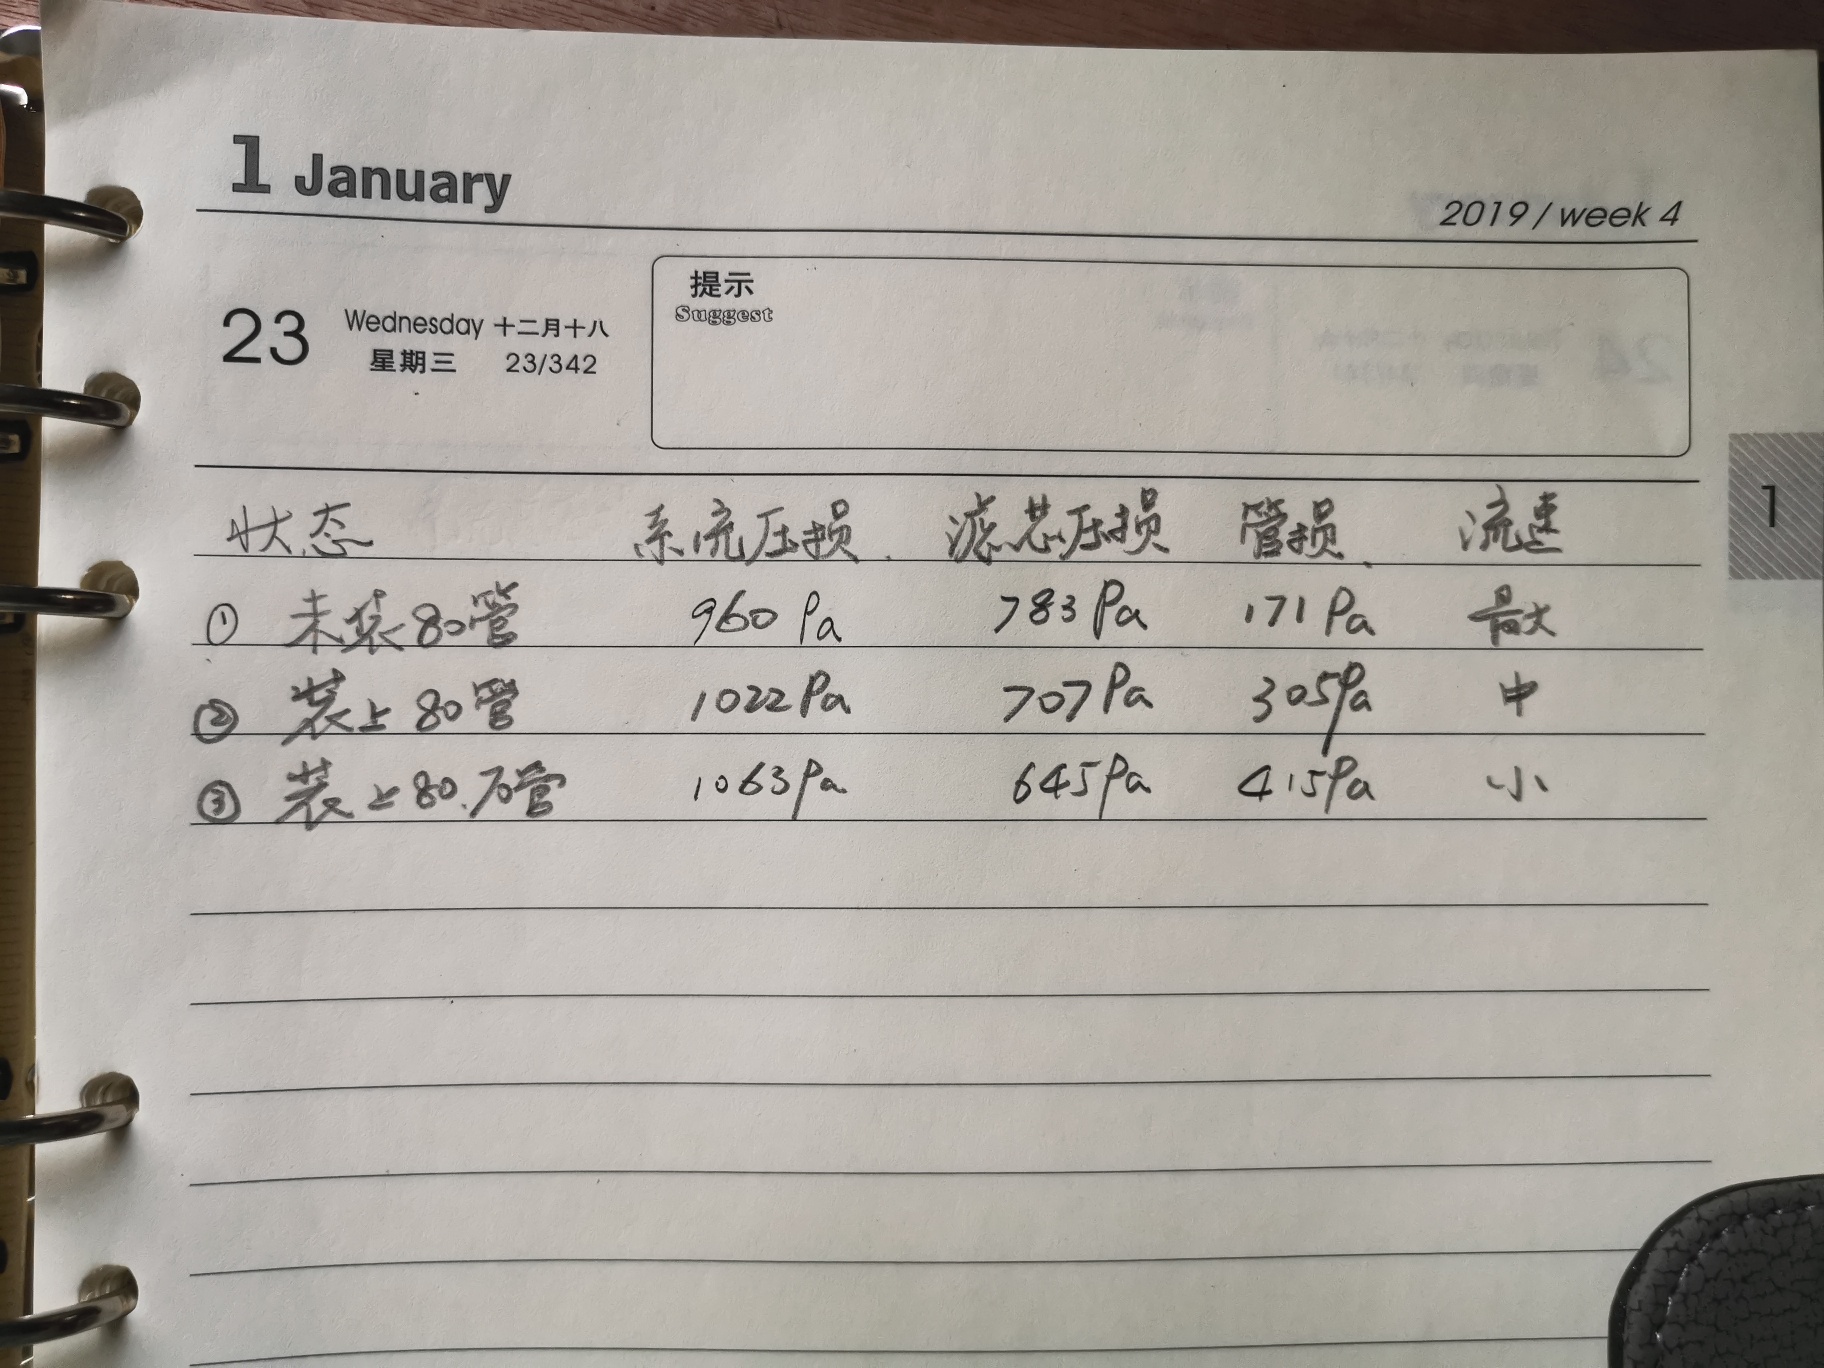 1 January
2019 / week 4
提示
Suggest
23 Wednesday 十二月十八
星期三 23/342
1
状态 系统压损 滤芯压损 管损 流速
① 未装80管 960 Pa 783 Pa 171 Pa 最大
② 装上80管 1022 Pa 707 Pa 305 Pa 中
③ 装上80.万管 1063 Pa 645 Pa 415 Pa 小